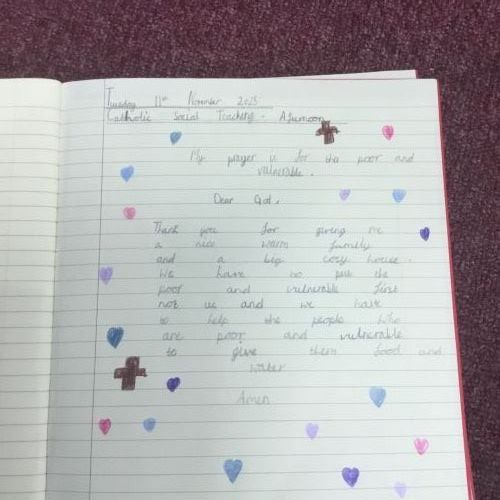 Tuesday 11th November 2025
Catholic Social Teaching - Afternoon
My prayer is for the poor and
vulnerable.
Dear God,
Thank you for giving me
a nice warm family
and a big cosy house.
We have to put the
poor and vulnerable first
not us and we have
to help the people who
are poor and vulnerable
to give them food and
water
Amen